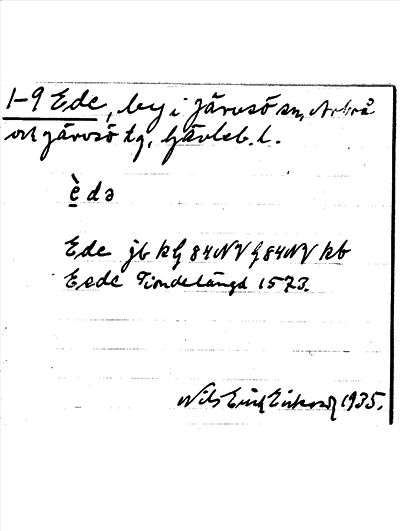 1-9 Ede, by i Järvsö sn, Arbrå
och Järvsö tg, Gävleb. l.
è̱ də
Ede jb kG 84NV G 84NV kb
Eede Tiondelängd 1573.
Nils Erik Eriksson 1935.